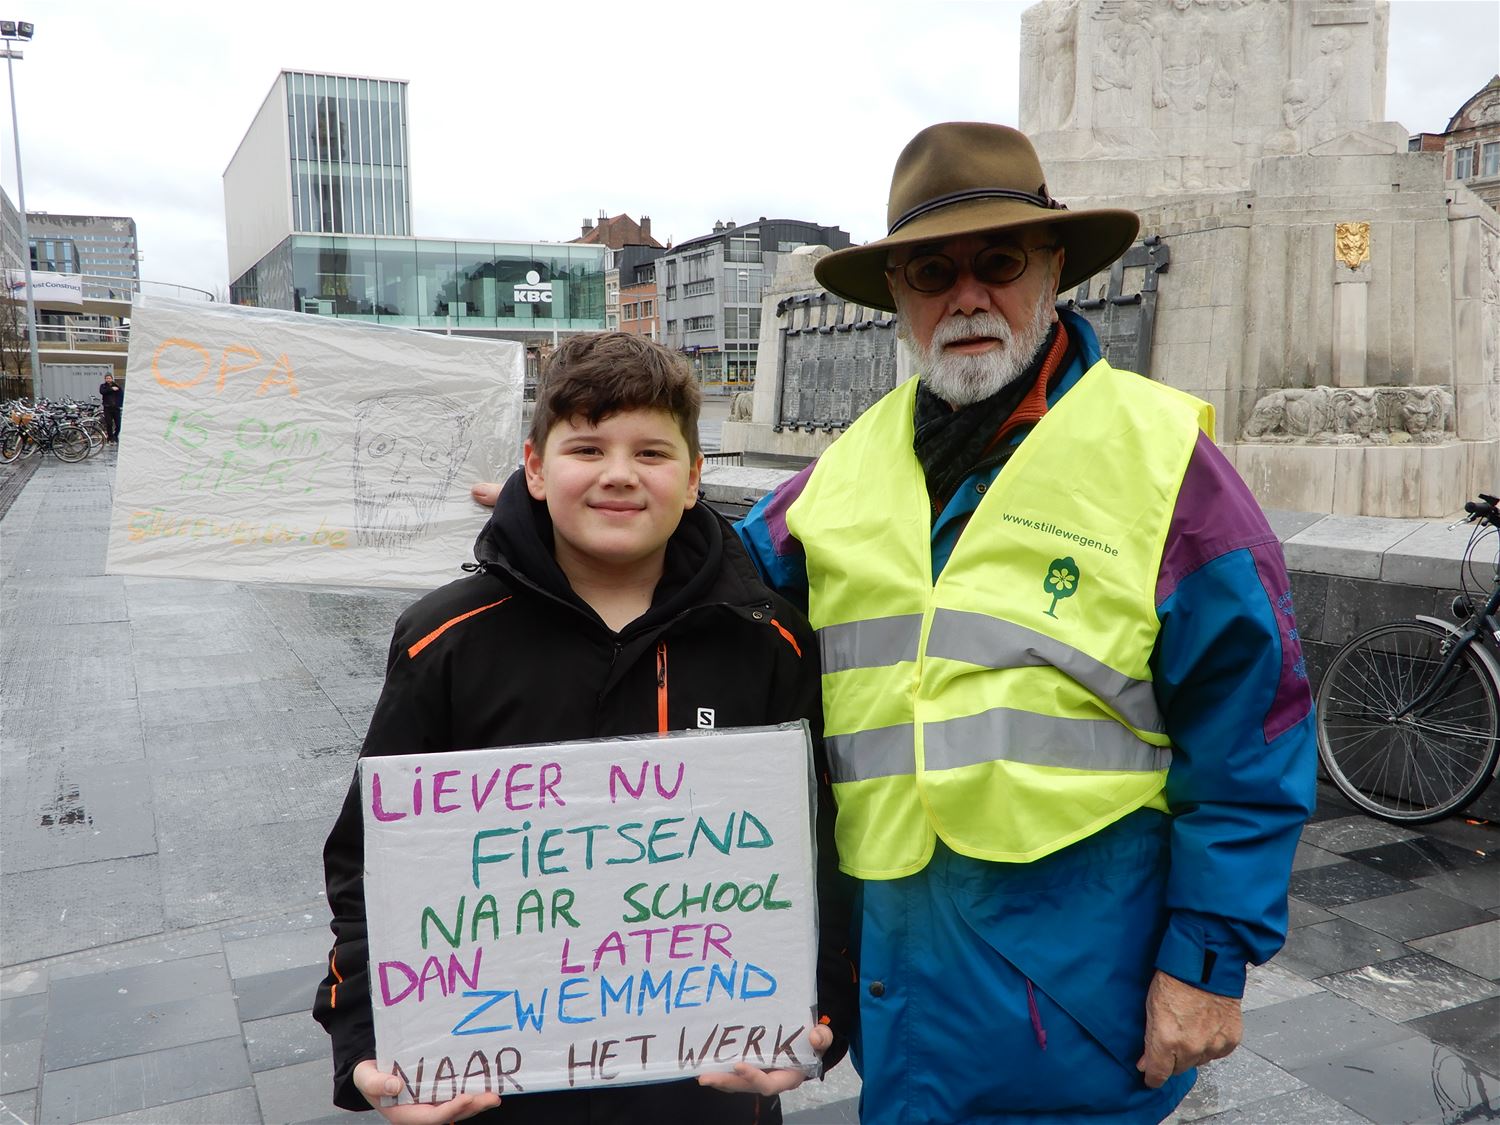 KBC
OPA
IS OOK
HIER!
STILLEWEGEN.be
www.stillewegen.be
S
LiEVER NU
FiETSEND
NAAR SCHOOL
DAN LATER
ZWEMMEND
NAAR HET WERK